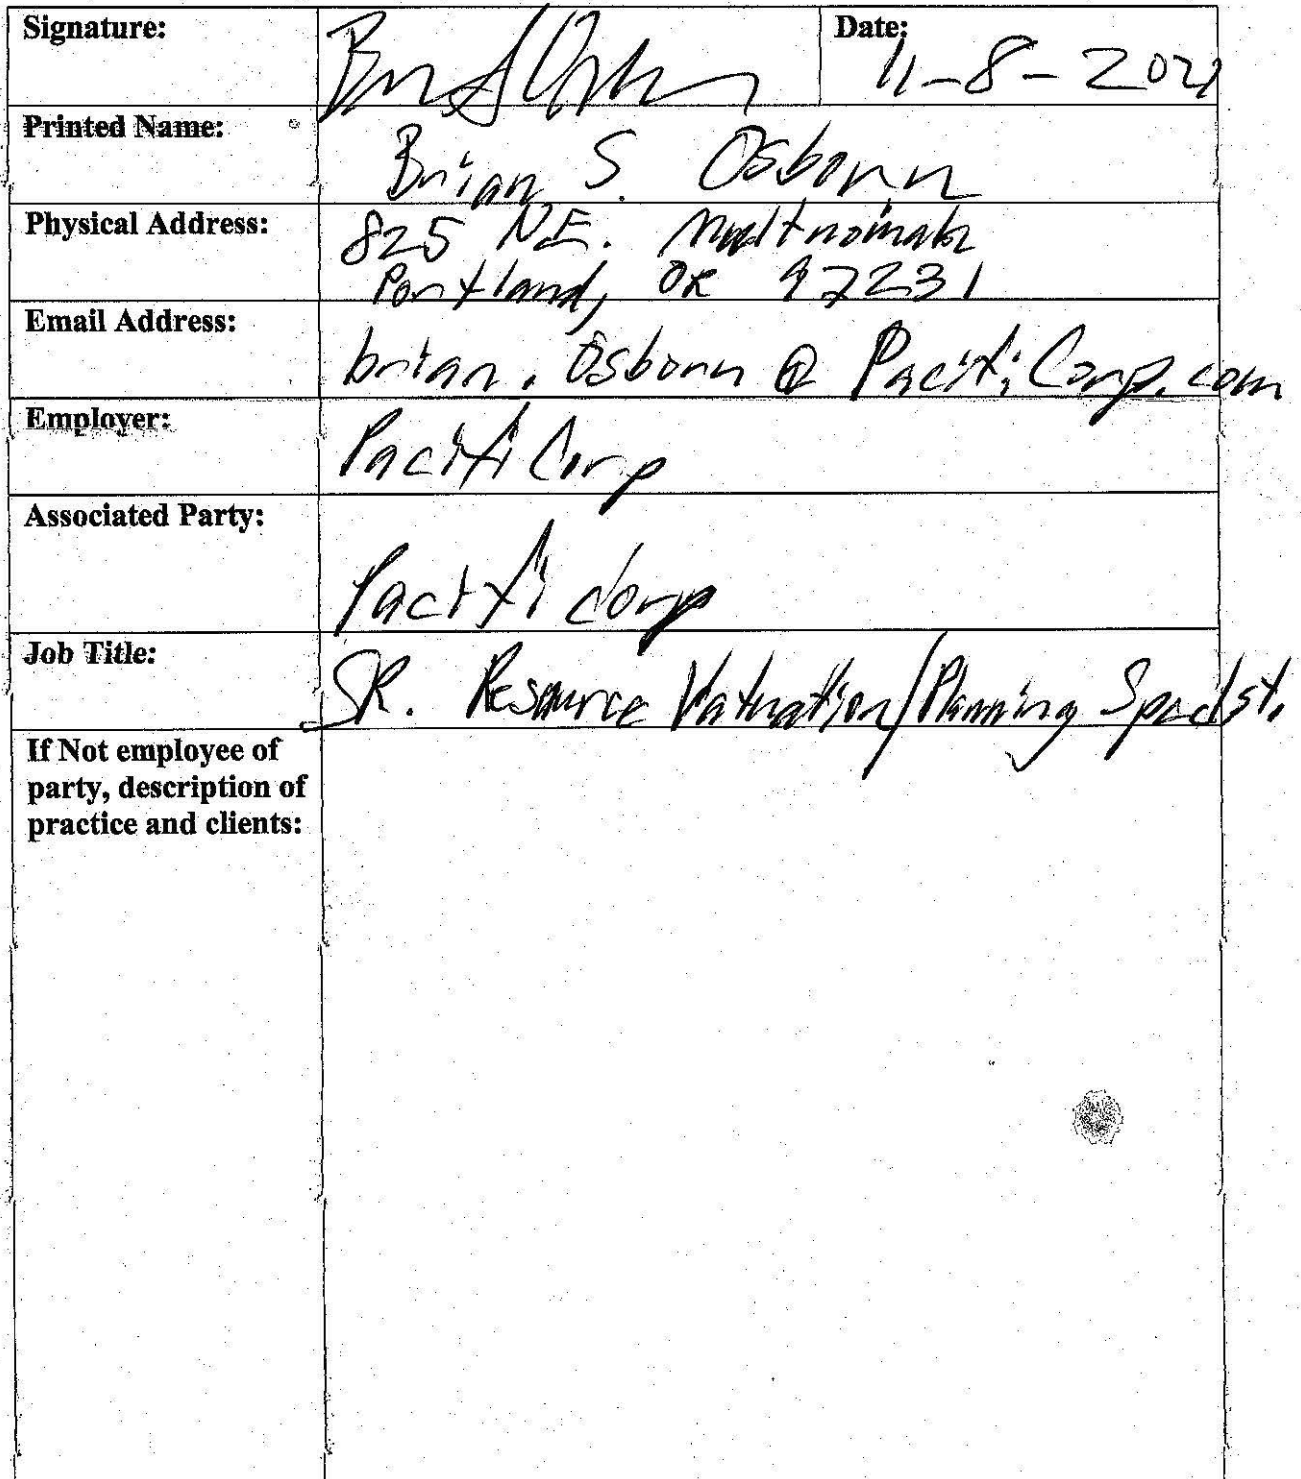 Signature:
Date:
11-8-2021
Printed Name:
Brian S. Osborn
Physical Address:
825 N.E. Multnomah
Portland, OR 97231
Email Address:
brian.Osborn@PacifiCorp.com
Employer:
PacifiCorp
Associated Party:
Pacificorp
Job Title:
SR. Resource Valuation/Planning
If Not employee of
party, description of
practice and clients: